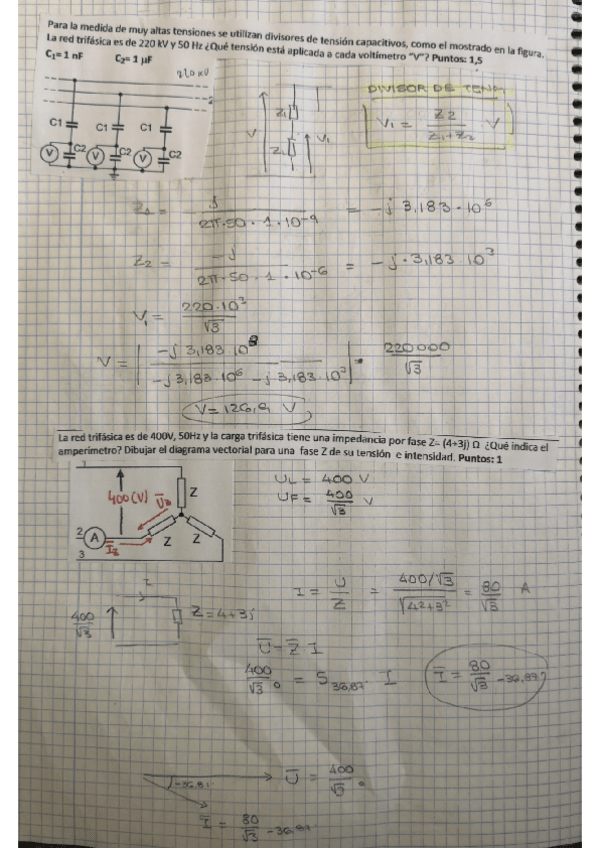 Para la medida de muy altas tensiones se utilizan divisores de tensión capacitivos, como el mostrado en la figura.
La red trifásica es de 220 kV y 50 Hz ¿Qué tensión está aplicada a cada voltímetro "V"? Puntos: 1,5
C₁= 1 nF C₂= 1 µF
220 kV
C1 C1 C1
C2 C2 C2
V V V
V Z₁ V₁
DIVISOR DE TENS
V₁ = Z2 / Z₁+Z₂ V
Z₁ = -j / 2π·50·1·10⁻⁹ = -j 3,183·10⁶
Z₂ = -j / 2π·50·1·10⁻⁶ = -j·3,183 10³
V₁ = 220·10³ / √3
V = | -j 3,183 10³ / -j 3,183·10⁶ -j 3,183·10³ | · 220000 / √3
V= 126,9 V
La red trifásica es de 400V, 50Hz y la carga trifásica tiene una impedancia por fase Z= (4+3j) Ω ¿Qué indica el
amperimetro? Dibujar el diagrama vectorial para una fase Z de su tensión e intensidad. Puntos: 1
1
400 (V) Z
2 A Z Z
3
UL = 400 V
UF = 400/√3 V
I = U/Z = 400/√3 / √4²+3² = 80/√3 A
I
400/√3 Z=4+3j
U=Z I
400/√3 ₀ = 5 36,87 · I
I = 80/√3 -36,87
-36,87
U = 400/√3 ₀
I = 80/√3 -36,87